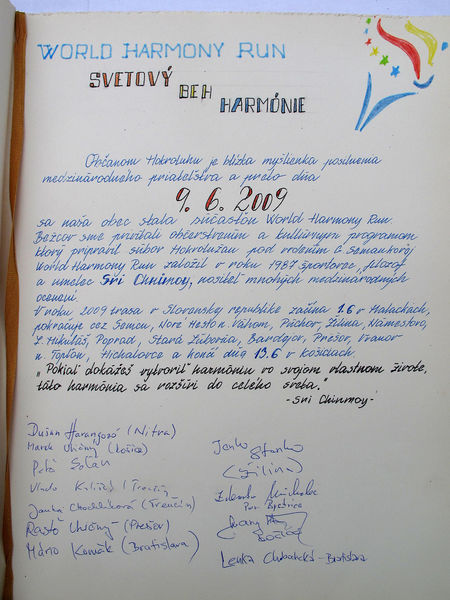 WORLD HARMONY RUN
SVETOVÝ BEH HARMÓNIE
Občanom Hokroluhu je blízka myšlienka posilnenia
medzinárodného priateľstva a preto dňa
9. 6. 2009
sa naša obec stala súčasťou World Harmony Run.
Bežcov sme privítali občerstvením a kultúrnym programom
ktorý pripravil súbor Hokrolužan pod vedením
World Harmony Run založil v roku 1987 športovec, filozof
a umelec Sri Chinmoy, nositeľ mnohých medzinárodných
ocenení.
V roku 2009 trasa v Slovenskej republike začína 1.6 v Malackách,
pokračuje cez Senicu, Nové Mesto n. Váhom, Púchov, Žilina, Námestovo,
L. Mikuláš, Poprad, Stará Ľubovňa, Bardejov, Prešov, Vranov
n. Topľou, Michalovce a končí dňa 13.6 v Košiciach.
„Pokiaľ dokážeš vytvoriť harmóniu vo svojom vlastnom živote,
táto harmónia sa rozšíri do celého sveta."
- Sri Chinmoy -
Dušan (Nitra)
Marek (Košice)
Peto
Vlado (Trenčín
Janka Chochlíková (Trenčín)
Rasťo (Prešov)
Mário (Bratislava)
Janko
(Žilina)
Zdenko
Pov. Bystrica
Lenka - Bratislava